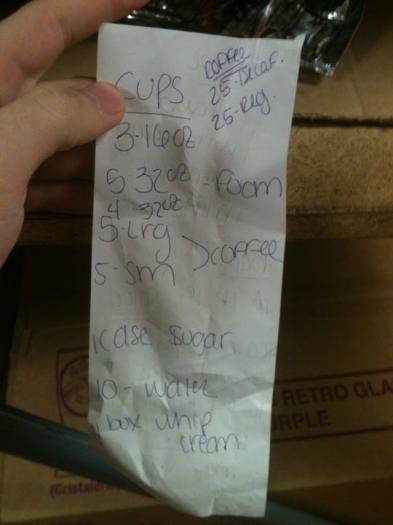 Coffee
25-Decaf.
25-Reg.
CUPS
3-16oz
5 32oz - Foam
4 32oz
5-Lrg
5-Sm > Coffee
1 case Sugar
10-Water
1 box whip
cream
RETRO GLA
RPLE
(Cristaler